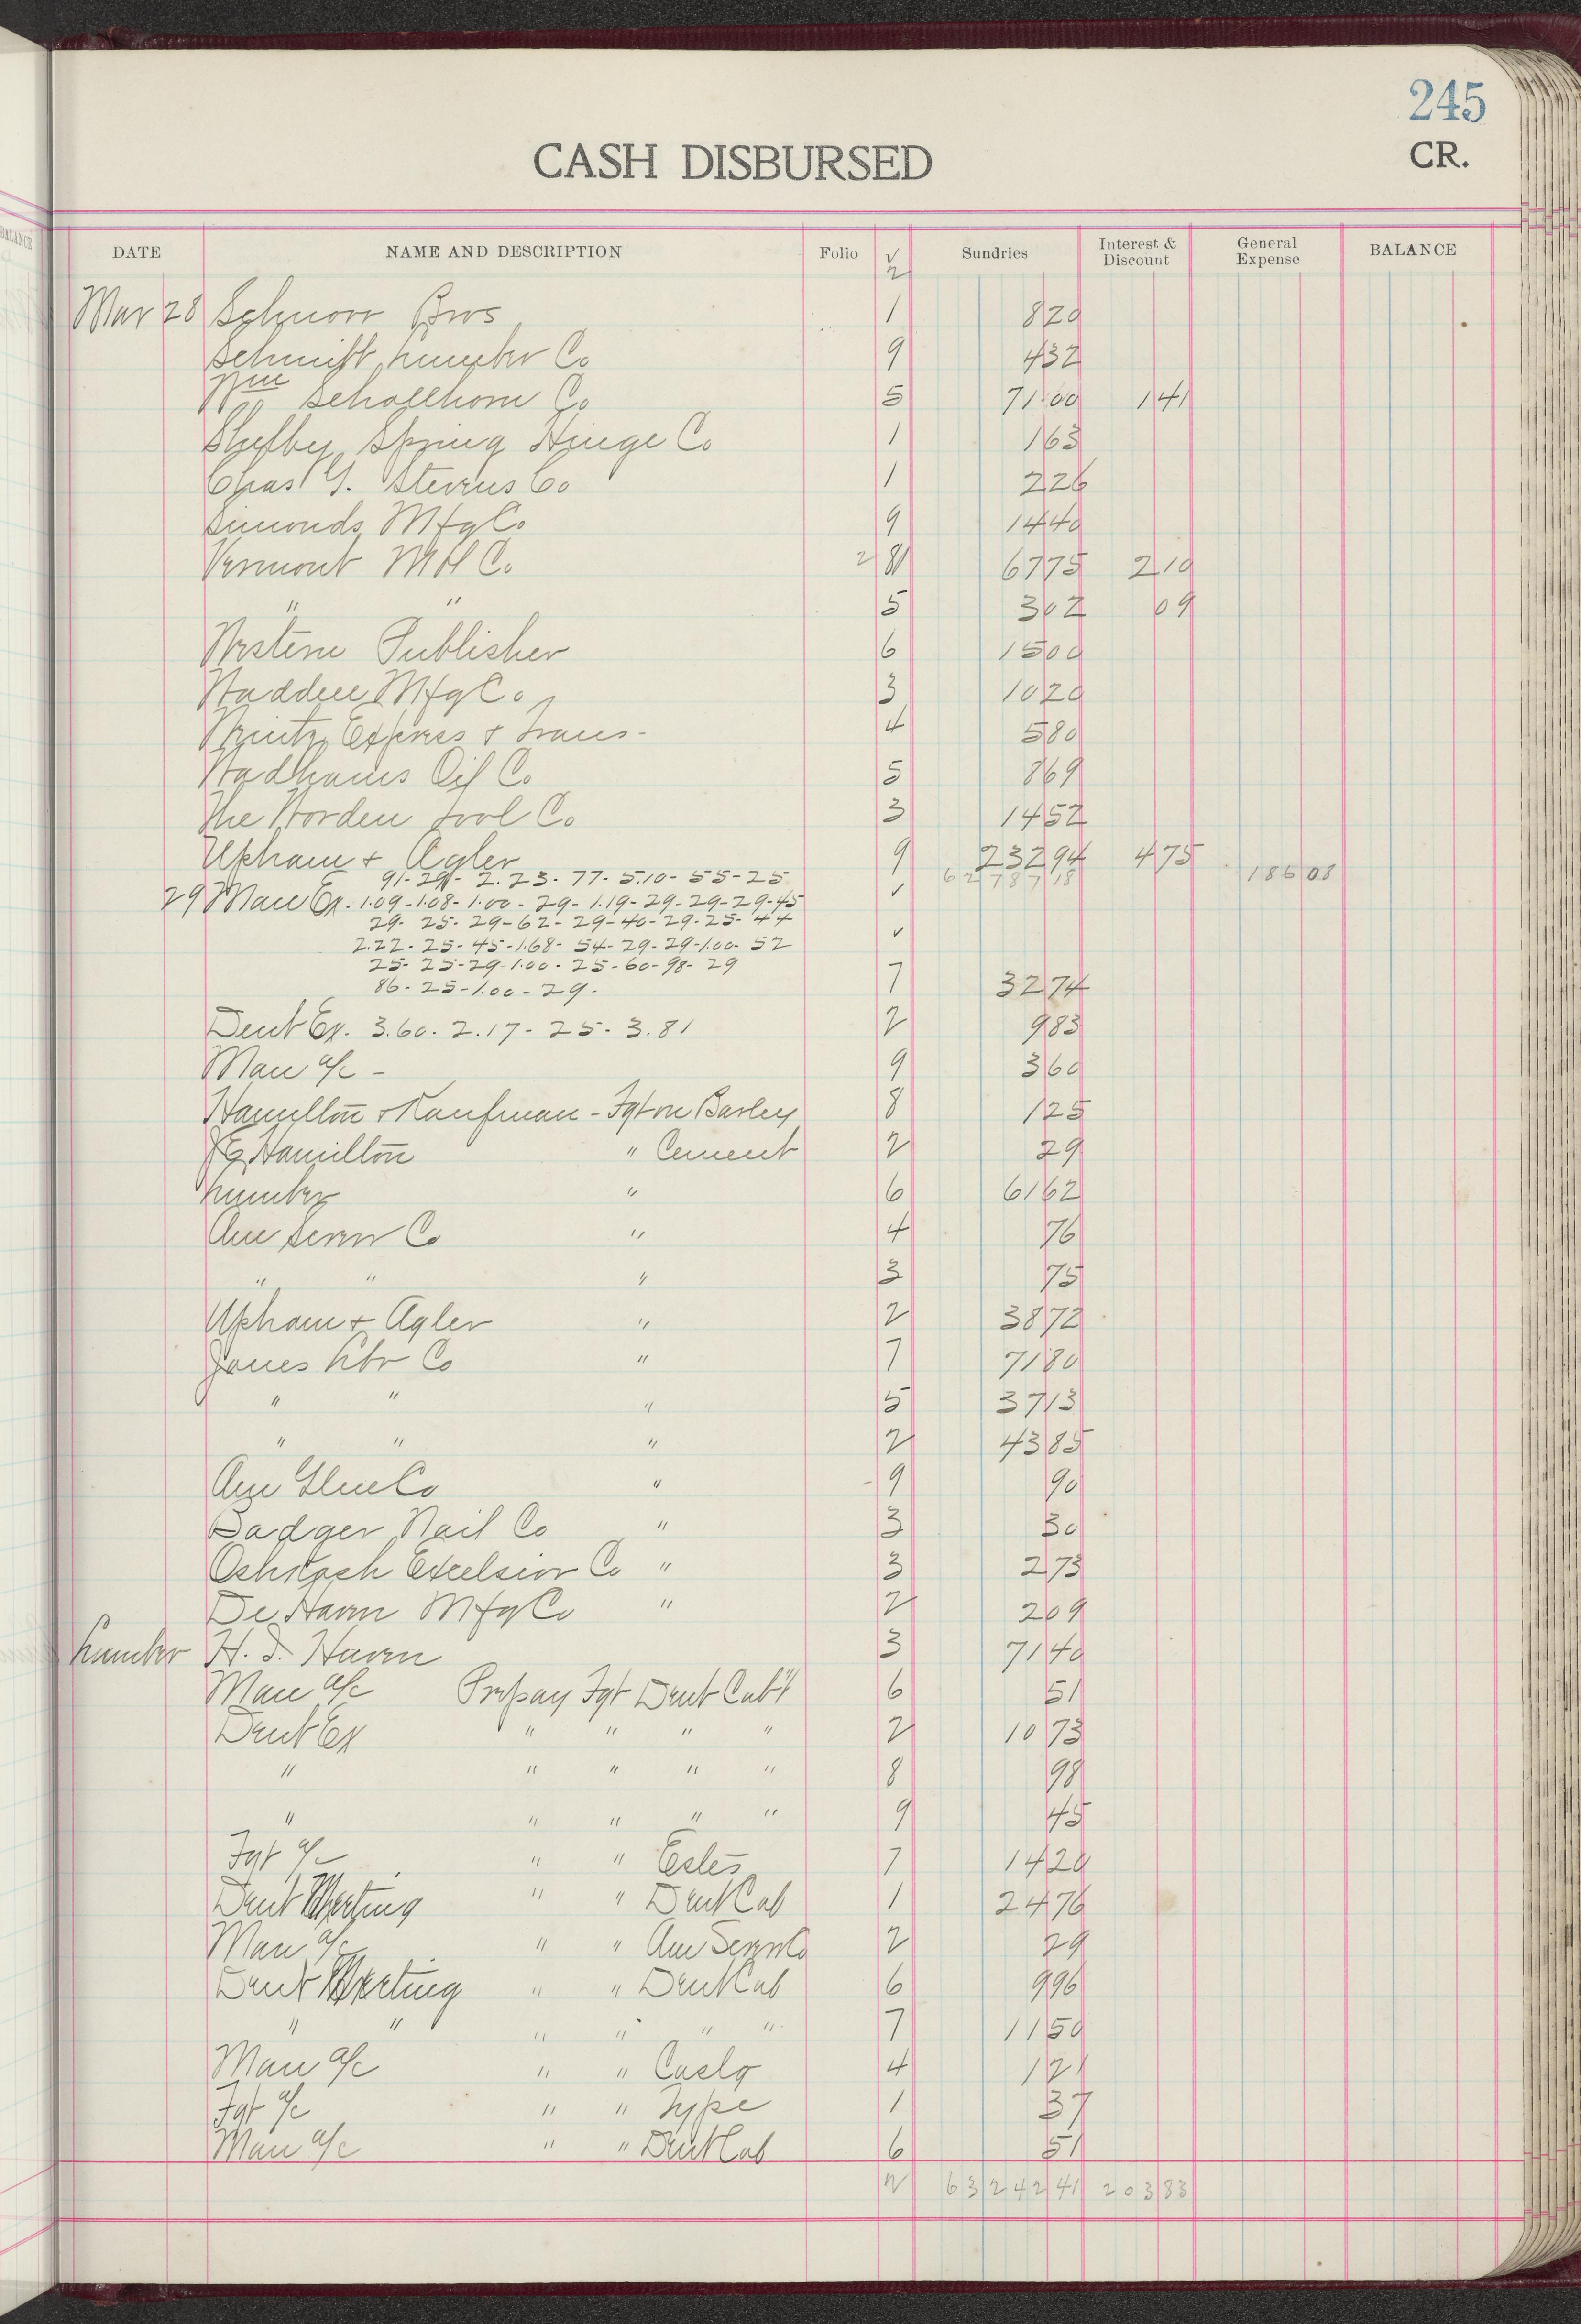 245
CASH DISBURSED CR.
BALANCE
DATE NAME AND DESCRIPTION Folio √ Sundries Interest & Discount General Expense BALANCE
Mar 28 Schnorr Bros 1 8 20
Schmitt Lumber Co 9 4 32
Wm Schollhorn Co 5 71 00 1 41
Shelby Spring Hinge Co 1 1 63
Chas G. Stevens Co 1 2 26
Simonds Mfg Co 9 14 40
Vermont M H Co 2 81 67 75 2 10
" " 5 3 02 09
Western Publisher 6 15 00
Waddell Mfg Co 3 10 20
Wruitz Express & Trans- 4 5 80
Wadhams Oil Co 5 8 69
The Worden Tool Co 3 14 52
Upham & Agler 9 232 94 4 75
91-29-2.23-77-5.10-55-25 62787 18 186 08
29 Man Ex. 1.09-1.08-1.00-29-1.19-29-29-29-45 √
29-25-29-62-29-40-29-25-44
2.22-25-45-1.68-54-29-29-1.00-52 √
25-25-29-1.00-25-60-98-29
86-25-1.00-29- 7 32 74
Dent Ex. 3.60-2.17-25-3.81 2 9 83
Man a/c - 9 3 60
Hamilton & Kaufman - Fgt on Barley 8 1 25
J E Hamilton " Cement 2 29
Lumber " 6 61 62
Am Screw Co " 4 76
" " " 3 75
Upham & Agler " 2 38 72
Jones Lbr Co " 7 71 80
" " " 5 37 13
" " " 2 43 85
Am Glue Co " 9 90
Badger Nail Co " 3 30
Oshkosh Excelsior Co " 3 2 73
De Haven Mfg Co " 2 2 09
Lumber H. I. Haven 3 71 40
Man a/c Prepay Fgt Dent Cab't 6 51
Dent Ex " " " " 2 10 73
" " " " " 8 98
" " " " " 9 45
Fgt a/c " " Estes 7 14 20
Dent Meeting " " Dent Cab 1 24 76
Man a/c " " Am Screw Co 2 29
Dent Meeting " " Dent Cab 6 9 96
" " " " " " 7 11 50
Man a/c " " Caslg 4 1 21
Fgt a/c " " Type 1 37
Man a/c " " Dent Cab 6 51
63242 41 203 83